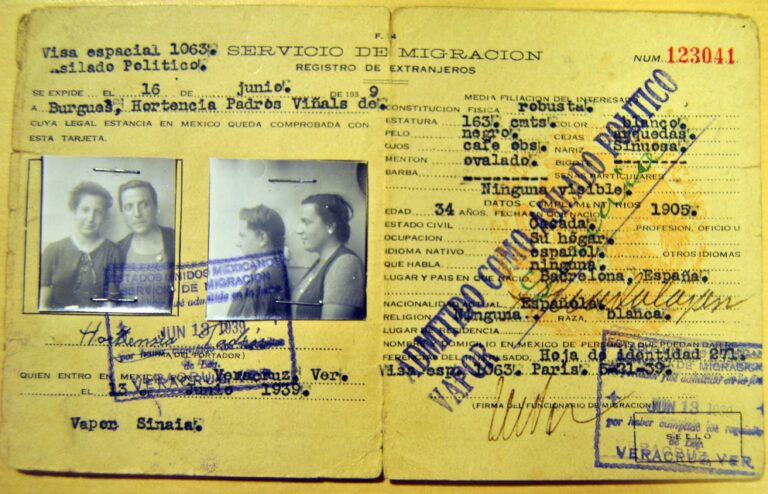 F. 14
Visa espacial 1063.
asilado Politico.
SERVICIO DE MIGRACION
REGISTRO DE EXTRANJEROS
NUM. 123041
SE EXPIDE EL 16 de junio. DE 1939
A Burgues, Hortencia Padrós Viñals de.
CUYA LEGAL ESTANCIA EN MEXICO QUEDA COMPROBADA CON
ESTA TARJETA.
ESTADOS UNIDOS MEXICANOS
SERVICIO DE MIGRACION
JUN 13 1939
VERACRUZ
Hortensia
(FIRMA DEL PORTADOR)
QUIEN ENTRO EN MEXICO Veracruz Ver.
EL 13 de junio 1939.
Vapor Sinaia.
MEDIA FILIACION DEL INTERESADO
CONSTITUCION FISICA robusta.
ESTATURA 163. cmts. COLOR blanco.
PELO negro. CEJAS arquedas.
OJOS cafe obs. NARIZ Sinuosa.
MENTON ovalado. BIGOTE -------
BARBA ------- SEÑAS PARTICULARES
Ninguna visible.
DATOS COMPLEMENTARIOS
EDAD 34 AÑOS. FECHA EN QUE NACIO 1905.
ESTADO CIVIL Casada. PROFESION, OFICIO U
OCUPACION Su hogar.
IDIOMA NATIVO español. OTROS IDIOMAS
QUE HABLA ninguno.
LUGAR Y PAIS EN QUE NACIO Barcelona, España.
NACIONALIDAD ACTUAL Española.
RELIGION Ninguna. RAZA, blanca.
LUGAR DE RESIDENCIA
NOMBRE Y DOMICILIO EN MEXICO DE PERSONAS QUE PUEDAN DAR RE-
FERENCIA DEL INTERESADO, Hoja de identidad 271.
Visa esp. 1063. Paris. 5-21-39.
(FIRMA DEL FUNCIONARIO DE MIGRACION)
ADMITIDO COMO ASILADO POLITICO
VAPOR
DE MIGRACION
JUN 13 1939
por haber cumplido los requisitos
de Ley.
SELLO
VERACRUZ VER.